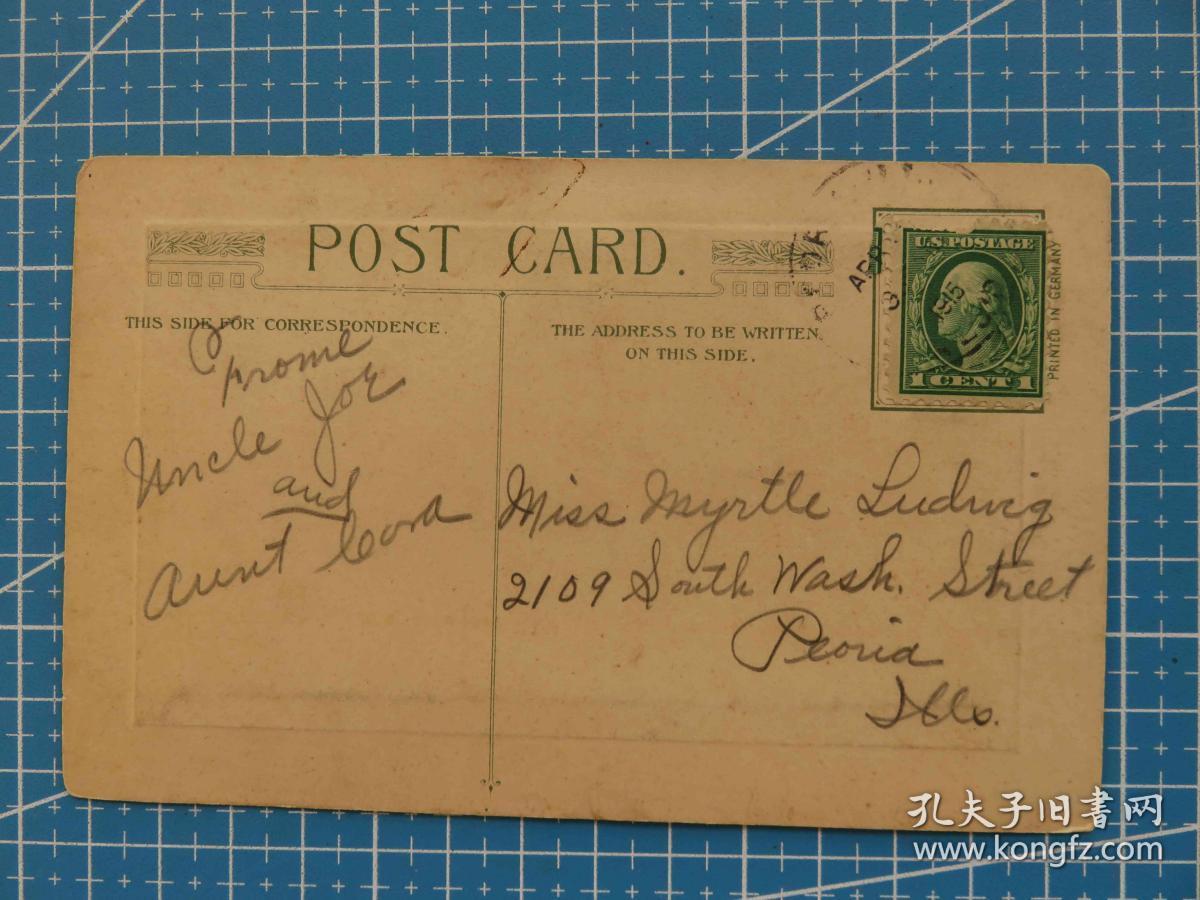 POST CARD.
THIS SIDE FOR CORRESPONDENCE.
THE ADDRESS TO BE WRITTEN
ON THIS SIDE.
APR
3
1915
U.S. POSTAGE
1 CENT 1
PRINTED IN GERMANY
Frome
Uncle Joe
and
Aunt Cora
Miss Myrtle Ludwig
2109 South Wash. Street
Peoria
Ills.
孔夫子旧书网
www.kongfz.com